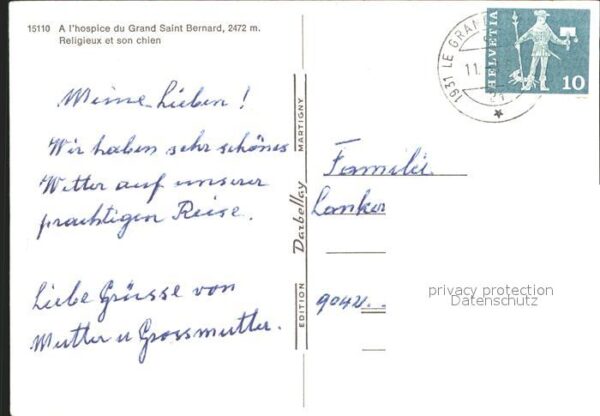 15110 A l'hospice du Grand Saint Bernard, 2472 m.
Religieux et son chien
Meine Lieben!
Wir haben sehr schönes
Wetter auf unserer
prachtigen Reise.
Liebe Grüsse von
Mutter u Grossmutter.
EDITION Darbellay MARTIGNY
1931 LE GRAND
11.
HELVETIA
10
Familie
Lanker
9042
privacy protection
Datenschutz